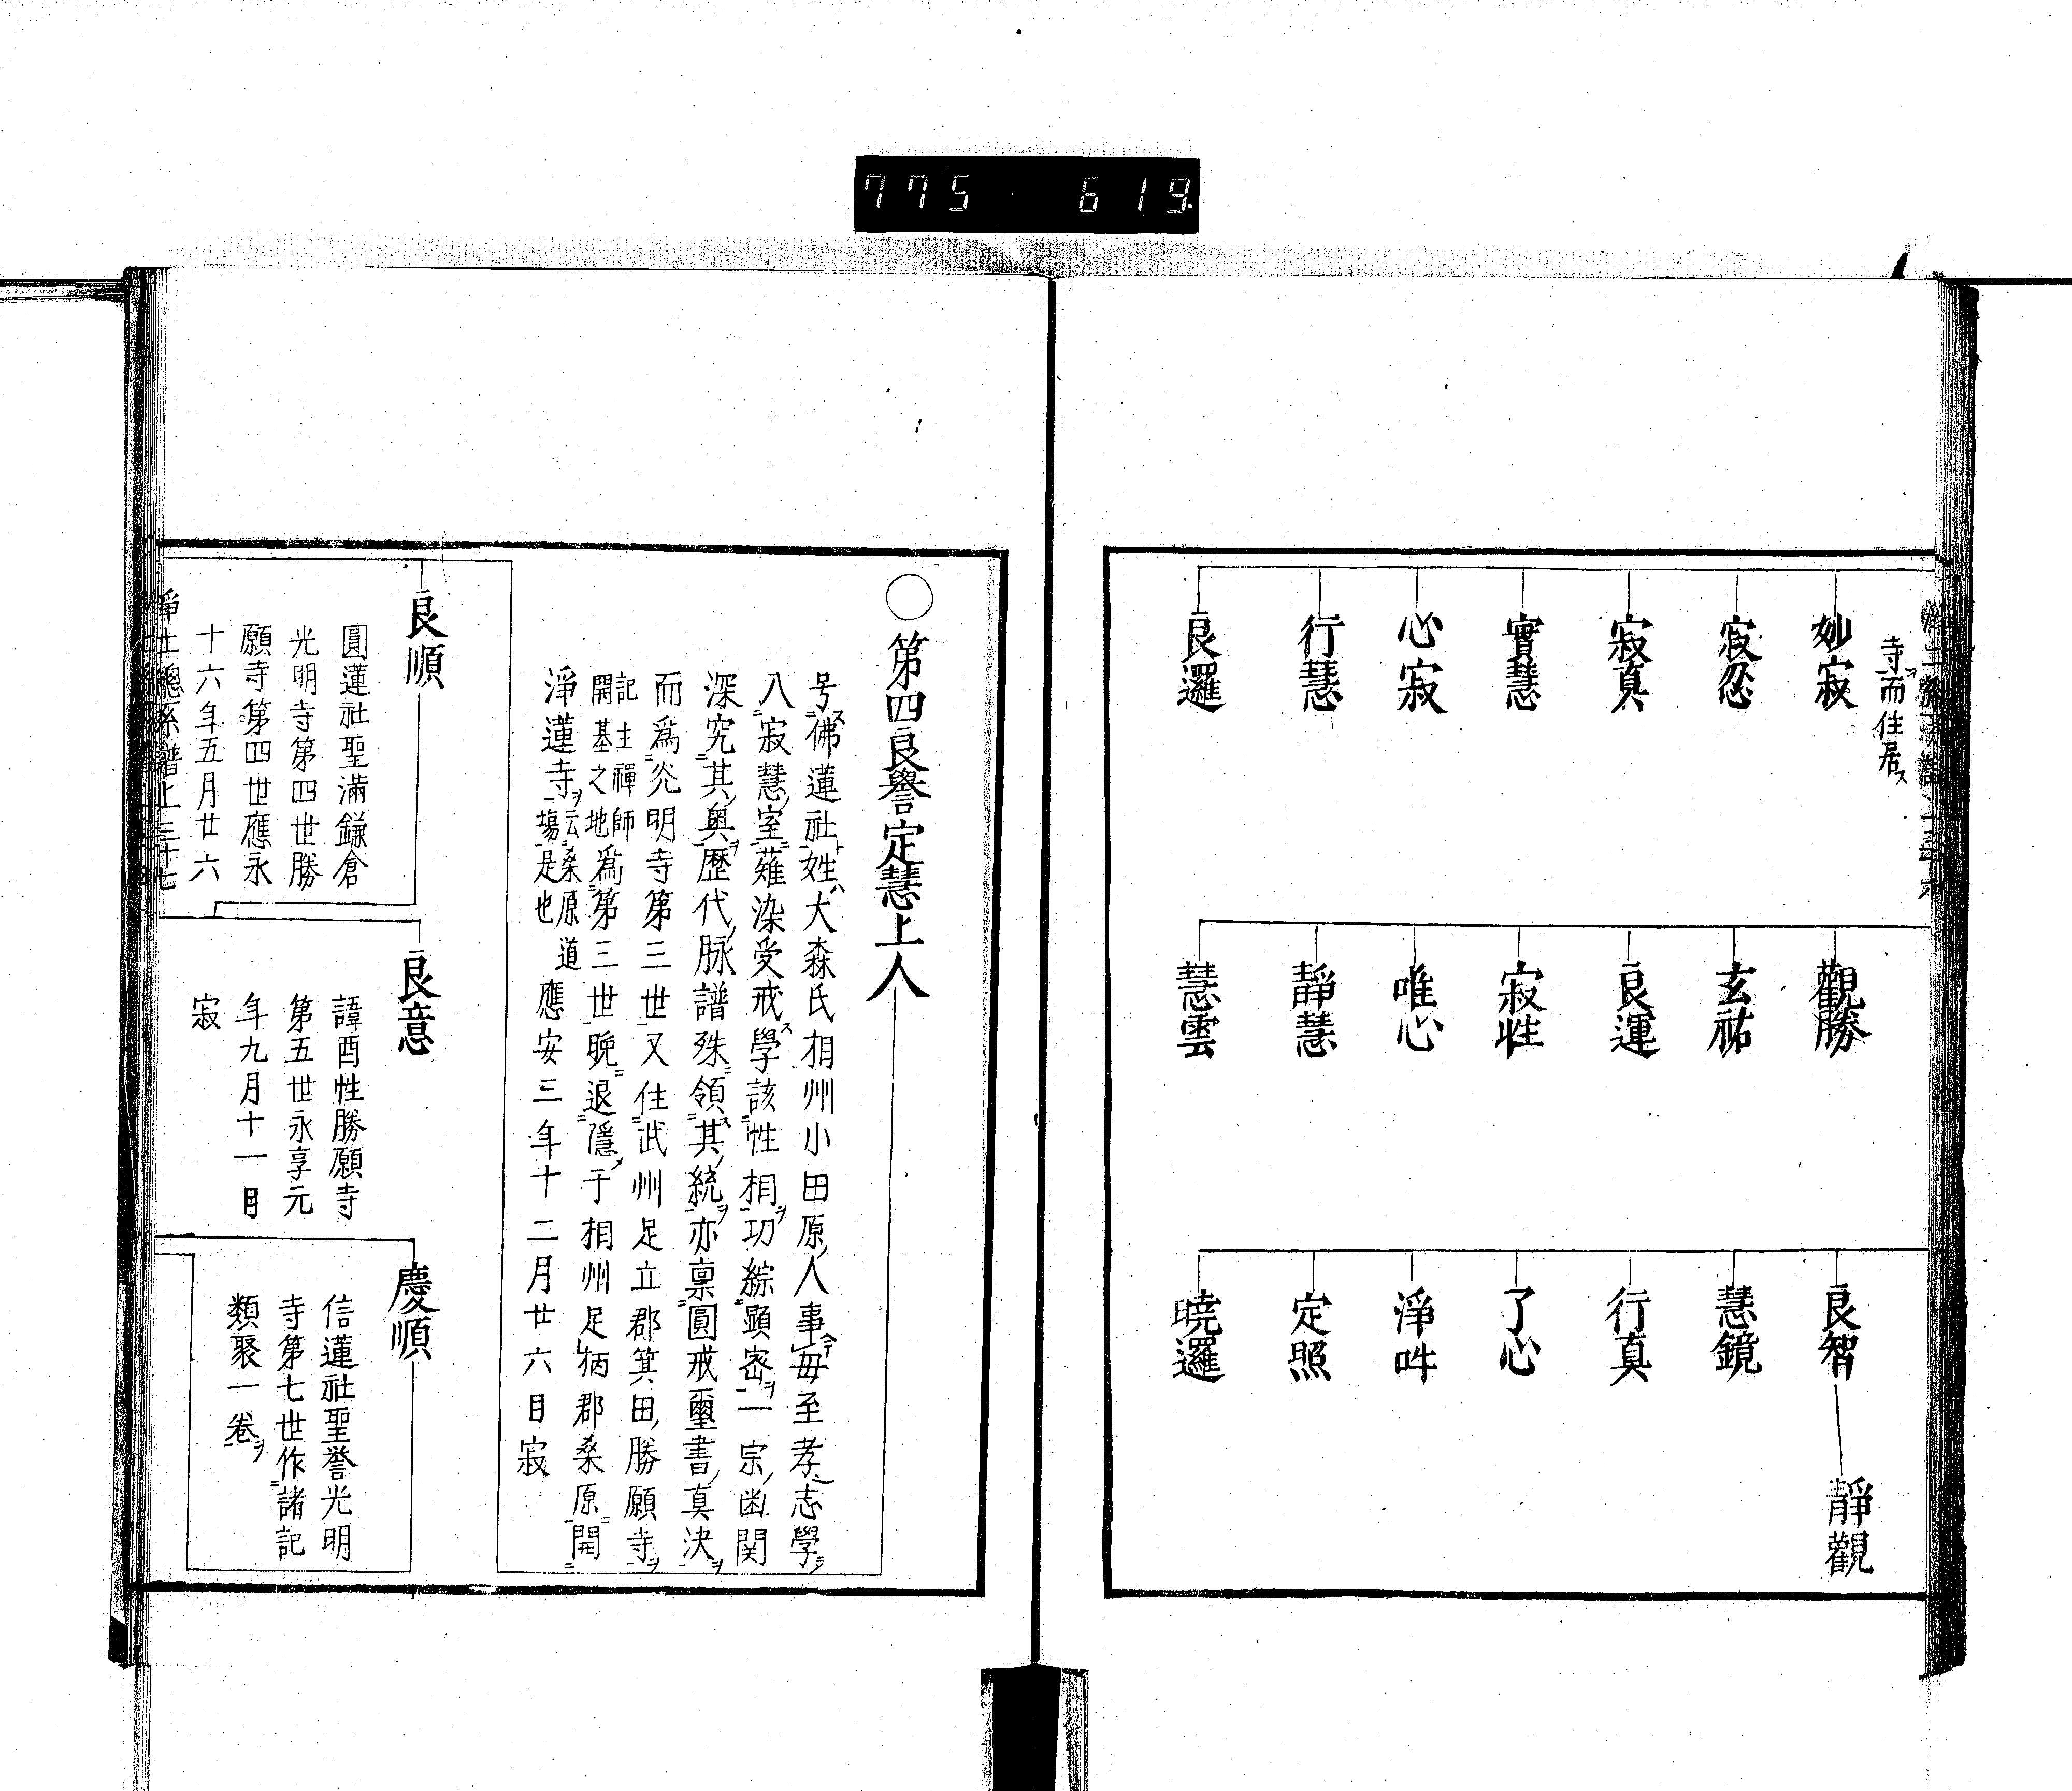 775 619
寺而住居
妙寂
寂忍
寂真
實慧
心寂
行慧
良邏
觀勝
玄祐
良運
寂性
唯心
靜慧
慧雲
良智
靜觀
慧鏡
行真
了心
淨吽
定照
暁邏
○第四良譽定慧上人
号佛蓮社姓大森氏相州小田原人事毋至孝志學
八寂慧室薙染受戒學該性相功綜顕密一宗幽関
深究其奥歴代脉譜殊領其統亦稟圓戒璽書真決
而為光明寺第三世又住武州足立郡箕田勝願寺
記主禪師
開基之地為第三世晩退隱于相州足柄郡桑原開
淨蓮寺
云桑原道
場是也
應安三年十二月廿六日寂
良順
圓蓮社聖滿鎌倉
光明寺第四世勝
願寺第四世應永
十六年五月廿六
良意
諱酉性勝願寺
第五世永享元
年九月十一日
寂
慶順
信蓮社聖誉光明
寺第七世作諸記
類聚一卷
淨土總系譜上三十七